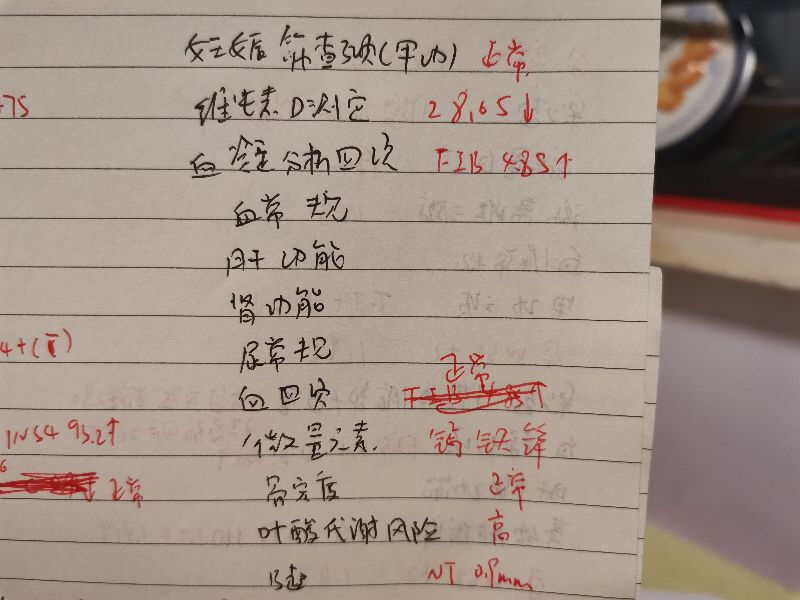 妊娠筛查项(甲功) 正常
+75 维生素D测定 28.05↓
血凝分析四项 FIB 4.85↑
血常规
肝功能
肾功能
4+(I)
尿常规
血四项 正常
INS4 95.2↑ 微量元素 钙 铁 锌
正常 正常
叶酸代谢风险 高
B超 NT 0.9mm